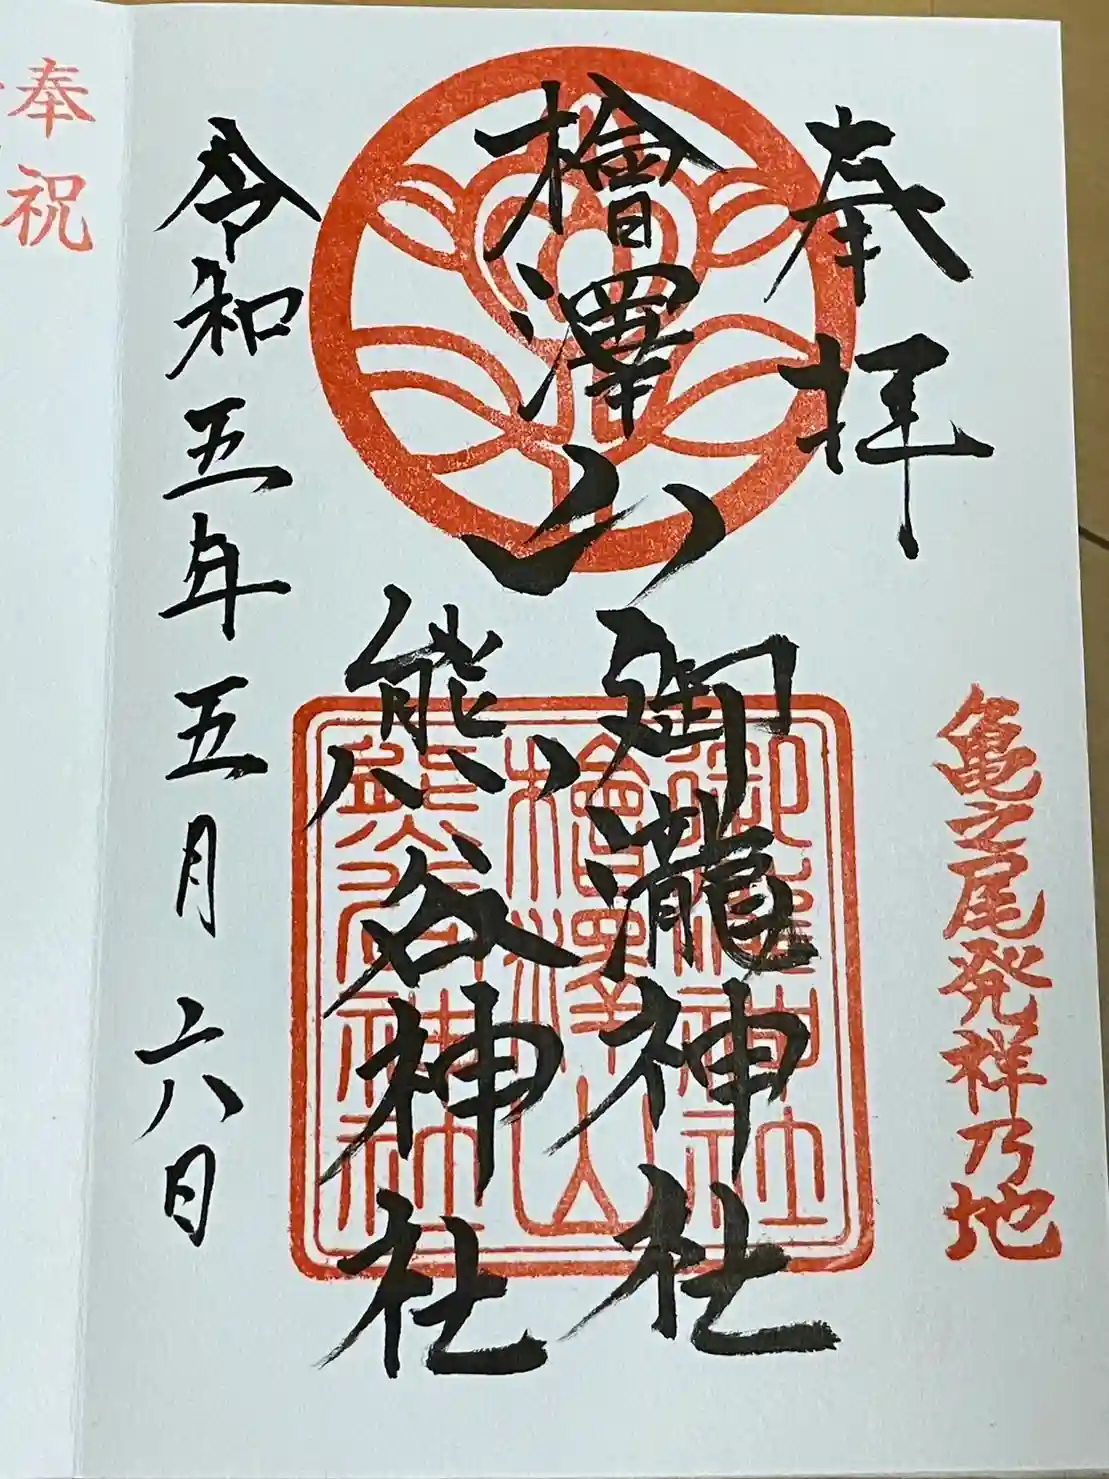 奉拝
亀之尾発祥乃地
檜澤山
御瀧神社
熊谷神社
御瀧神社
檜澤山
熊谷神社
令和五年五月六日
奉祝